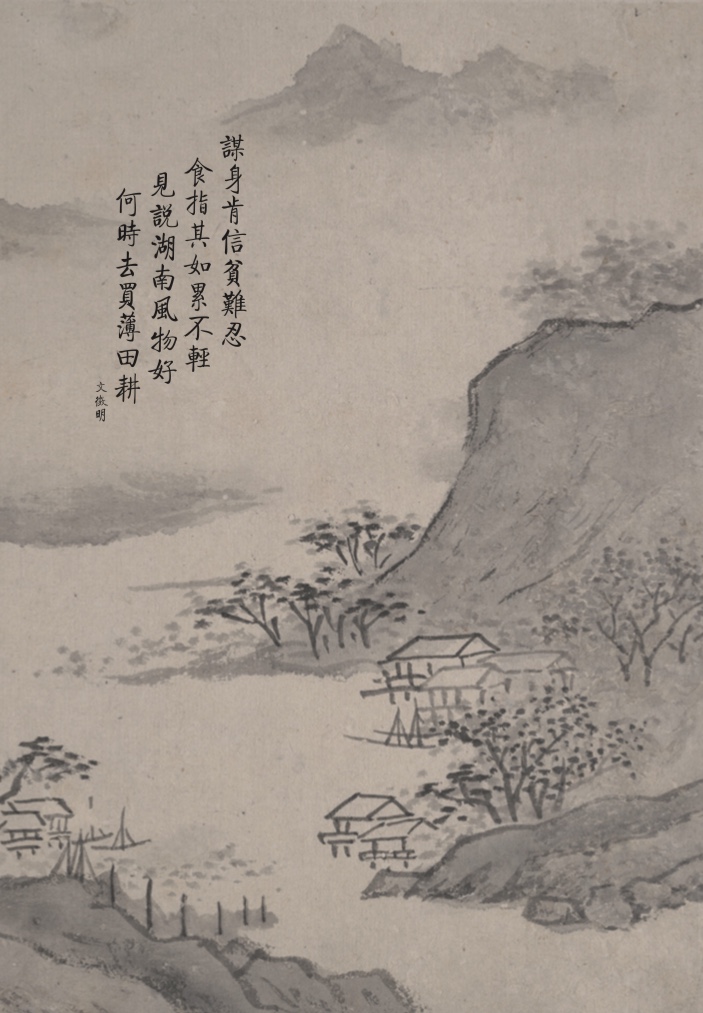 謀身肯信貧難忍
食指其如累不輕
見説湖南風物好
何時去買薄田耕
文徵明